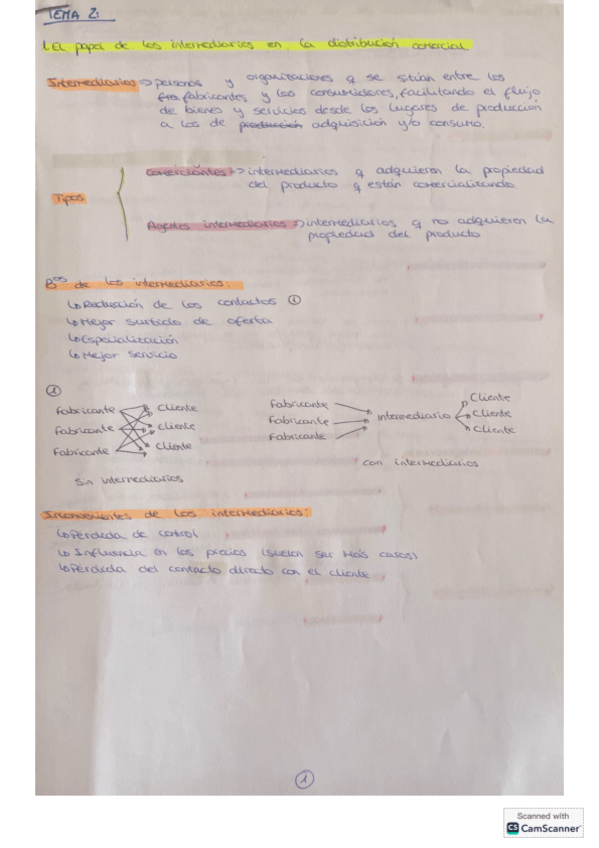 TEMA 2:
1. El papel de los intermediarios en la distribución comercial
Intermediarios => personas y organizaciones q se sitúan entre los
fabricantes y los consumidores, facilitando el flujo
de bienes y servicios desde los lugares de producción
a los de producción adquisición y/o consumo.
Comerciantes => intermediarios q adquieren la propiedad
del producto q están comercializando.
Tipos
Agentes intermediarios => intermediarios q no adquieren la
propiedad del producto
Bos de los intermediarios:
↳ Reducción de los contactos ①
↳ Mejor surtido de oferta
↳ Especialización
↳ Mejor servicio
①
Fabricante Cliente Fabricante Cliente
Fabricante Cliente Fabricante Intermediario Cliente
Fabricante Cliente Fabricante Cliente
con intermediarios
Sin intermediarios
Inconvenientes de los intermediarios:
↳ Pérdida de control
↳ Influencia en los precios (suelen ser más caros)
↳ Pérdida del contacto directo con el cliente
1
Scanned with
CS CamScanner